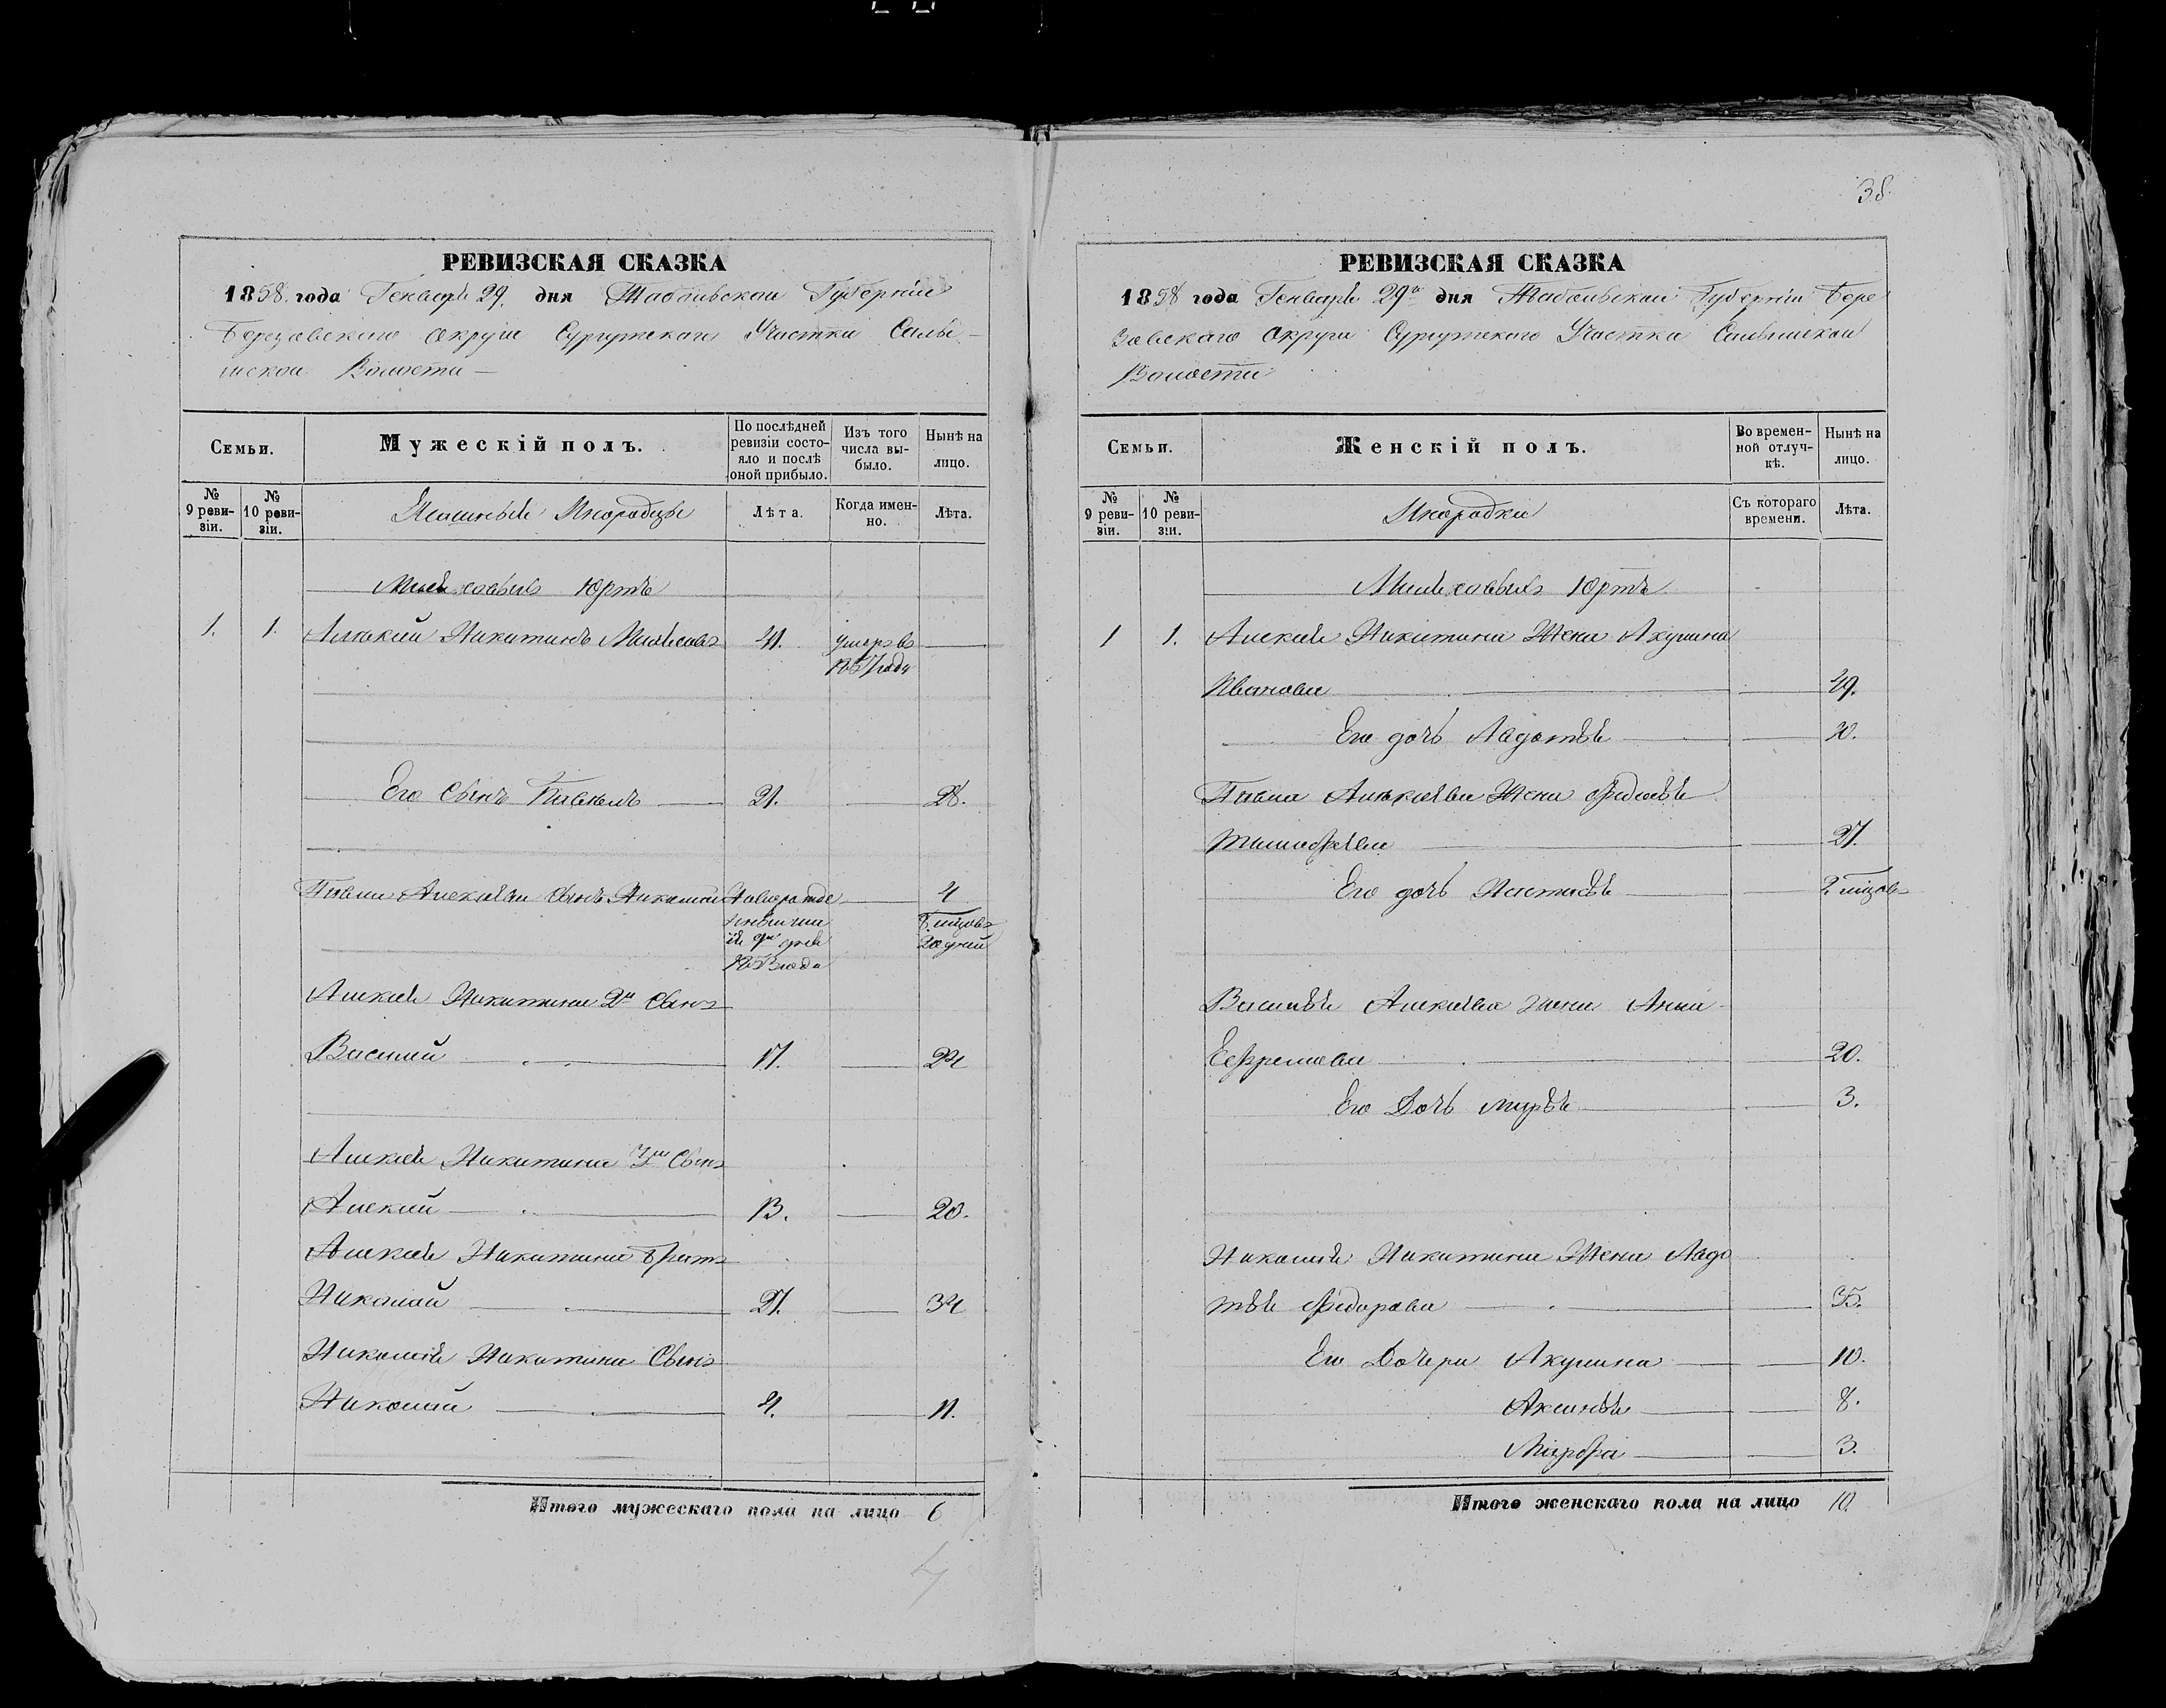 38.
РЕВИЗСКАЯ СКАЗКА
1858. года Генваря 29. дня Тобольской Губерніи
Березовскаго Округа Сургутскаго Участка Салы-
мской Волости —
Семьи.
Мужескій полъ.
По послѣдней ревизіи состояло и послѣ оной прибыло.
Изъ того числа выбыло.
Нынѣ на лицо.
№ 9 ревизіи.
№ 10 ревизіи.
Ясашные Инородцы
Лѣта.
Когда именно.
Лѣта.
Юртъ
1. 1. Алексѣй Никитинъ 41. умеръ въ
1857 году
Его Сынъ Павелъ 21. 28.
Павла Алексѣева Сынъ Николай 4
8 мцовъ
20 дней
Алексѣя Никитина 2й Сынъ
Василій 17. 24
Алексѣя Никитина 3й Сынъ
Алексѣй 13. 20.
Алексѣя Никитина братъ
Николай 27. 34
Николая Никитина Сынъ
Николай 4. 11.
Итого мужескаго пола на лицо 6
РЕВИЗСКАЯ СКАЗКА
1858 года Генваря 29го дня Тобольской Губерніи Бере
зовскаго Округа Сургутскаго Участка Салымской
Волости
Семьи.
Женскій полъ.
Во временной отлучкѣ.
Нынѣ на лицо.
№ 9 ревизіи.
№ 10 ревизіи.
Инородки
Съ котораго времени.
Лѣта.
Юртъ
1 1. Алексѣя Никитина Жена Акулина
Иванова 49.
Его дочь Авдотья
Павла Алексѣева Жена Федосья
Тимофѣева 27.
Его дочь Настасья 2 мцовъ
Василья Алексѣева жена Анна
Ефремова 20.
Его Дочь Марья 3.
Николая Никитина Жена Авдо
тья Федорова 35.
Его Дочери Акулина 10.
Аксинья 8.
Марфа 3.
Итого женскаго пола на лицо 10.